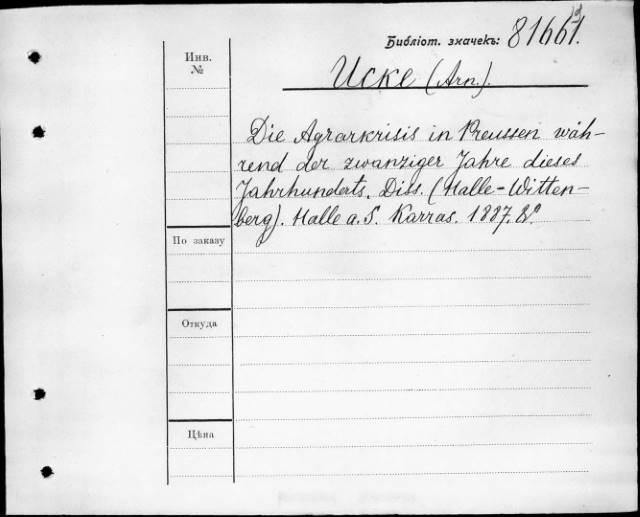 Библіот. значекъ: 81661.
Инв.
№
Ucke (Arn.).
Die Agrarkrisis in Preussen wäh-
rend der zwanziger Jahre dieses
Jahrhunderts. Diss. (Halle-Witten-
berg). Halle a. S. Karras. 1887. 8°.
По заказу
Откуда
Цѣна